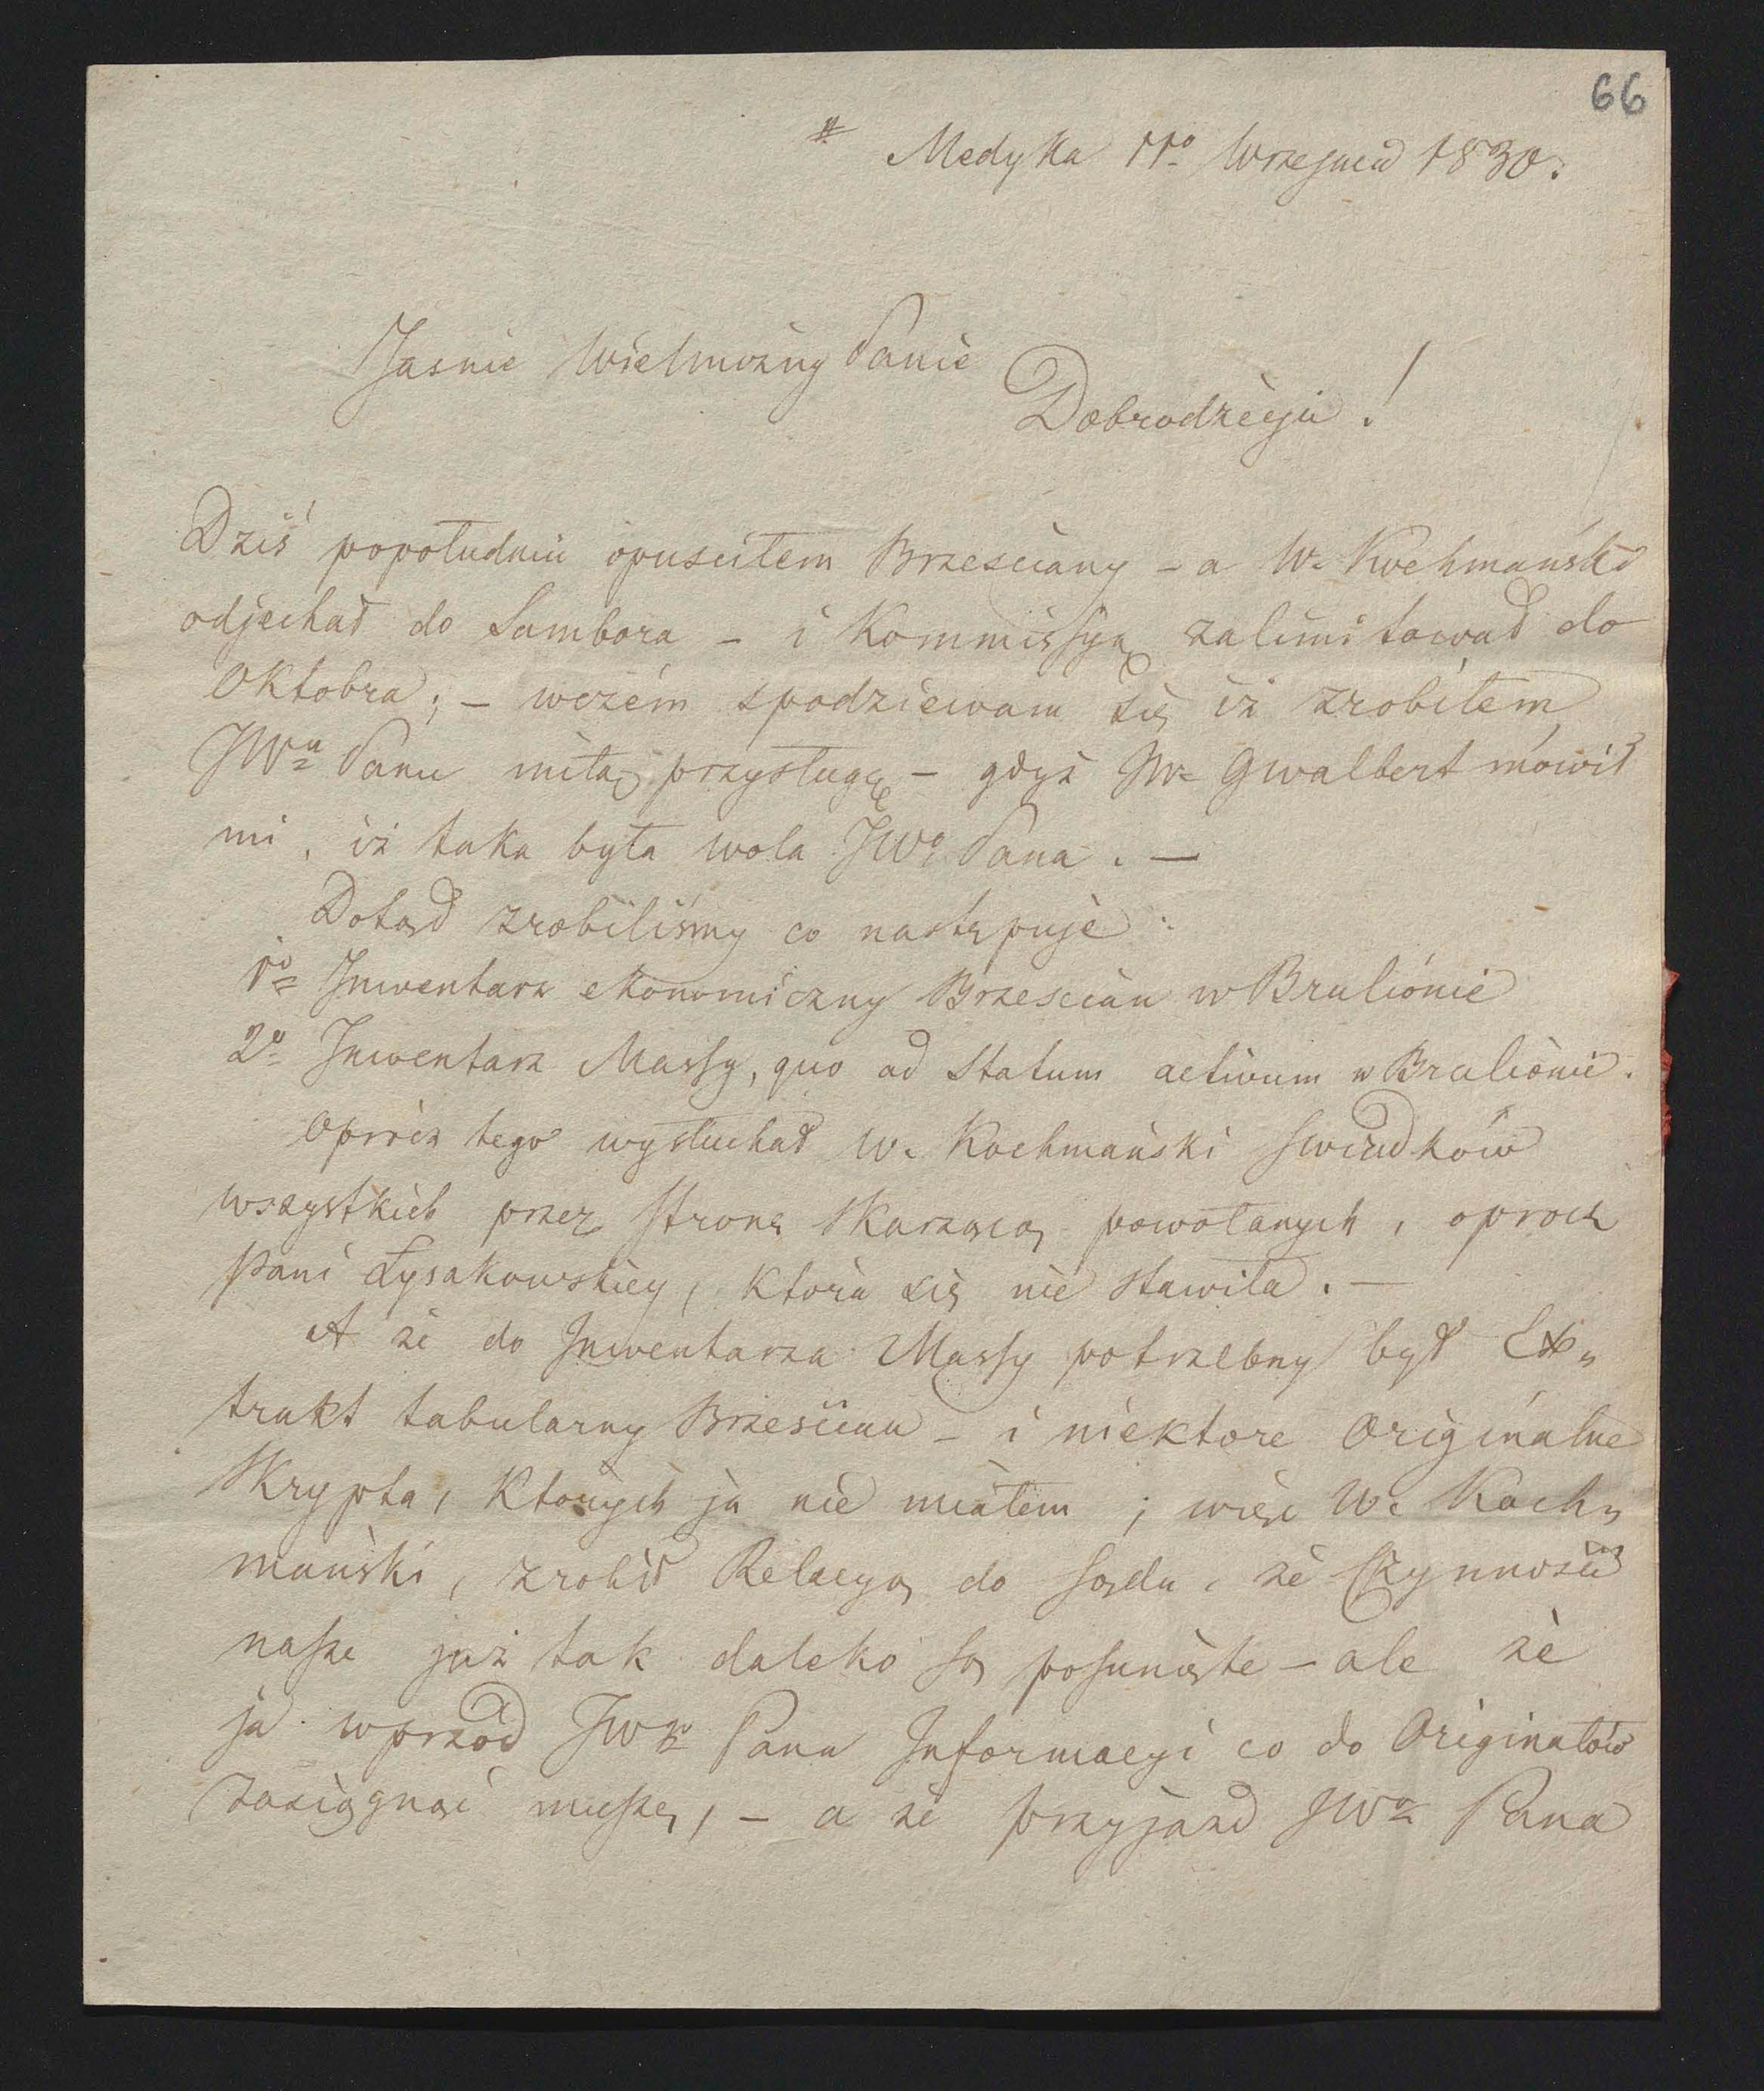 66
# Medyka 11º Wrzesnia 1830.
Jasnie Wielmożny Panie
Dobrodzieju!
Dziś popołudniu opusciłem Brzesciany – a W. Kochmański
odjechał do Sambora – i Kommissyą zalimitował do
Oktobra; – wczém spodziewam się iż zrobiłem
JWu Panu miłą przysługę – gdyż JW Gwalbert mówił
mi, iż taka była wola JWo Pana. —
Dotąd zrobiliśmy co następuje:
1º Inwentarz ekonomiczny Brzescian w Brulionie
2º Inwentarz Massy, quo ad Statum activum w Brulionie.
Oprócz tego wysłuchał W. Kochmański swiadków
wszystkich przez stronę skarzącą powołanych, oprócz
Pani Łysakowskiey, która się nie stawiła. —
A że do Inwentarza Massy potrzebny był Ex„
trakt tabularny Brzescian – i niektore Originalne
Skrypta, których ja nie miałem; więc W. Koch„
mański, zrobił Relacyą do sądu, że Czynności
nasze już tak daleko są posunięte – ale że
ja wprzód JWo Pana Informacyi co do Originałów
zasięgnąć muszę, – a że przyjazd JWo Pana